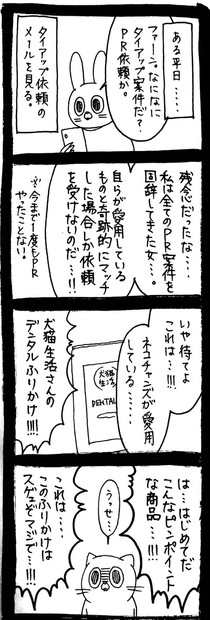 ある平日……
ファーン。なになに
タイアップ案件だ?
PR依頼か。
タイアップ依頼の
メールを見る。
残念だったな…
私は全てのPR案件を
固辞してきた女…。
自らが愛用している
ものと奇跡的にマッチ
した場合しか依頼
を受けないのだ…!!
※今まで1度もPR
やったことない。
いや待てよ
これは…!!!
ネコチャンズが愛用
している……
犬猫
生活
DENTAL
犬猫生活さんの
デンタルふりかけ!!!
は…はじめてだ
こんなピンポイント
な商品…!!!
うっせ…
これは……
このふりかけは
スゲェぞマジで…!!!